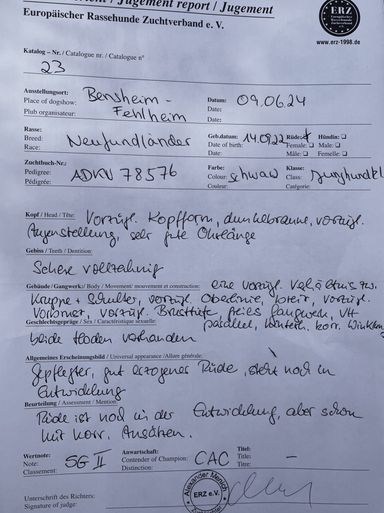 / Judgement report / Jugement
Europäischer Rassehunde Zuchtverband e. V.
ERZ
www.erz-1998.de
Katalog – Nr./ Catalogue nr. / Catalogue n°
23
Ausstellungsort:
Place of dogshow:
Plub organisateur:
Bensheim-
Fehlheim
Datum:
Date:
Date:
09.06.24
Rasse:
Breed:
Race:
Neufundländer
Geb.datum:
Date of birth:
Date:
14.09.22
Rüde:
Female:
Mâle:
Hündin:
Male:
Femelle:
Zuchtbuch-Nr.:
Pedigree:
Pédigrée:
ADKV 78576
Farbe:
Colour:
Couleur:
schwarz
Klasse:
Class:
Catégorie:
Junghundkl
Kopf / Head / Tête:
Vorzügl. Kopfform, dunkelbraune, vorzügl.
Augenstellung, sehr gute Ohrlänge
Gebiss / Teeth / Dentition:
Schere vollzahnig
Gebäude/Gangwerk:/ Body / Movement/ mouvement et construction:
eine vorzügl. Verhältnis zw.
Kruppe + Schulter, vorzügl. Oberlinie, breit, vorzügl.
Vorbrust, vorzügl. Brusttiefe, freies Gangwerk, VH
Geschlechtsgepräge / Sex / Caractéristique sexuelle:
parallel, korr. Winklung
beide Hoden vorhanden
Allgemeines Erscheinungsbild / Universal appearance /Allure générale:
Gepflegter, gut erzogener Rüde, steht noch in
Entwicklung
Beurteilung / Assessment / Mention:
Rüde ist noch in der Entwicklung, aber schon
mit korr. Ansätzen.
Wertnote:
Note:
Classement:
SG II
Anwartschaft:
Contender of Champion:
Distinction:
CAC
Titel:
Title:
Titre:
–
Unterschrift des Richters:
Signature of judge:
ERZ e.V.